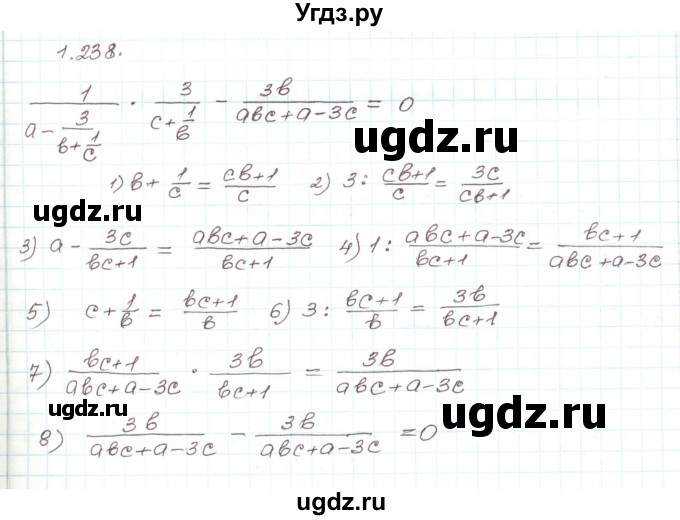 Угдз.ру
1.238.
1/(a - 3/(b + 1/c)) · 3/(c + 1/b) - 3b/(abc+a-3c) = 0
ugdz.ru ugdz.ru
1) b + 1/c = (cb+1)/c 2) 3 : (cb+1)/c = 3c/(cb+1)
ugdz.ru
3) a - 3c/(bc+1) = (abc+a-3c)/(bc+1) 4) 1 : (abc+a-3c)/(bc+1) = (bc+1)/(abc+a-3c)
ugdz.ru
5) c + 1/b = (bc+1)/b 6) 3 : (bc+1)/b = 3b/(bc+1)
7) (bc+1)/(abc+a-3c) · 3b/(bc+1) = 3b/(abc+a-3c)
ugdz.ru ugdz.ru
8) 3b/(abc+a-3c) - 3b/(abc+a-3c) = 0
ugdz.ru